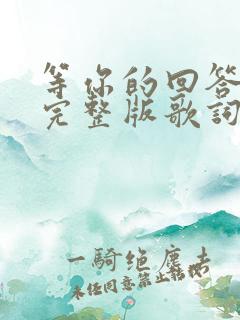 等你的回答
完整版歌词
一骑绝尘去
未经同意禁止转载